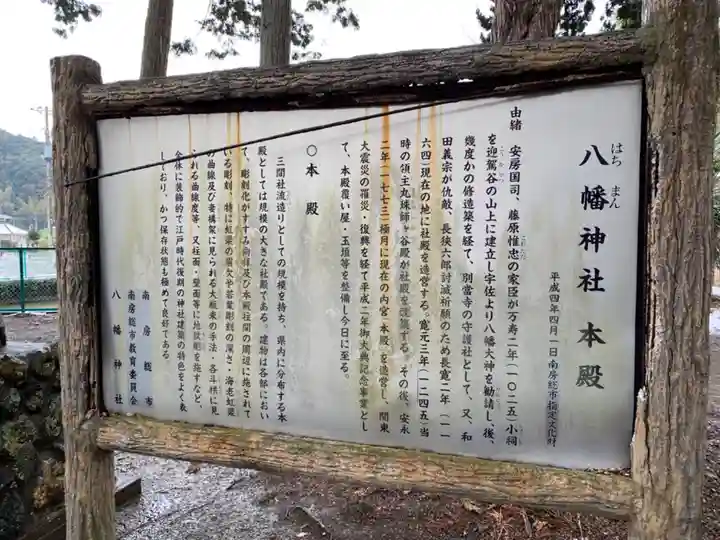 八幡神社 本殿
はち まん
平成四年四月一日南房総市指定文化財
由緒 安房国司、藤原惟忠の家臣が万寿二年(一〇二五)小祠
を迎駕谷の山上に建立し宇佐より八幡大神を勧請し、後、
幾度かの修造築を経て、別當寺の守護社として、又、和
田義宗が仇敵、長狭六郎討滅祈願のため長寛二年(一一
六四)現在の地に社殿を造営する。寛元三年(一二四五)当
時の領主丸珠師ヶ谷殿が社殿を造築する。その後、安永
二年(一七七三)極月に現在の内宮(本殿)を造営し、関東
大震災の罹災・復興を経て平成二年御大典記念事業とし
て、本殿覆い屋・玉垣等を整備し今日に至る。
〇本殿
三間社流造りとしての規模を持ち、県内に分布する本
殿としては規模の大きな社殿である。建物は各部におい
て、彫刻化がすすみ向拝及び本殿柱間の周辺に施されて
いる彫刻、特に虹梁の渦文や若葉彫刻の深さ・海老虹梁
の曲線及び妻構架に見られる大瓶束の手法、各斗栱に見
られる曲線度等、又柱面・壁面等に地紋彫を施すなど、
全体に装飾的で江戸時代後期の神社建築の特色をよく表
しており、かつ保存状態も極めて良好である。
南房総市
南房総市教育委員会
八幡神社